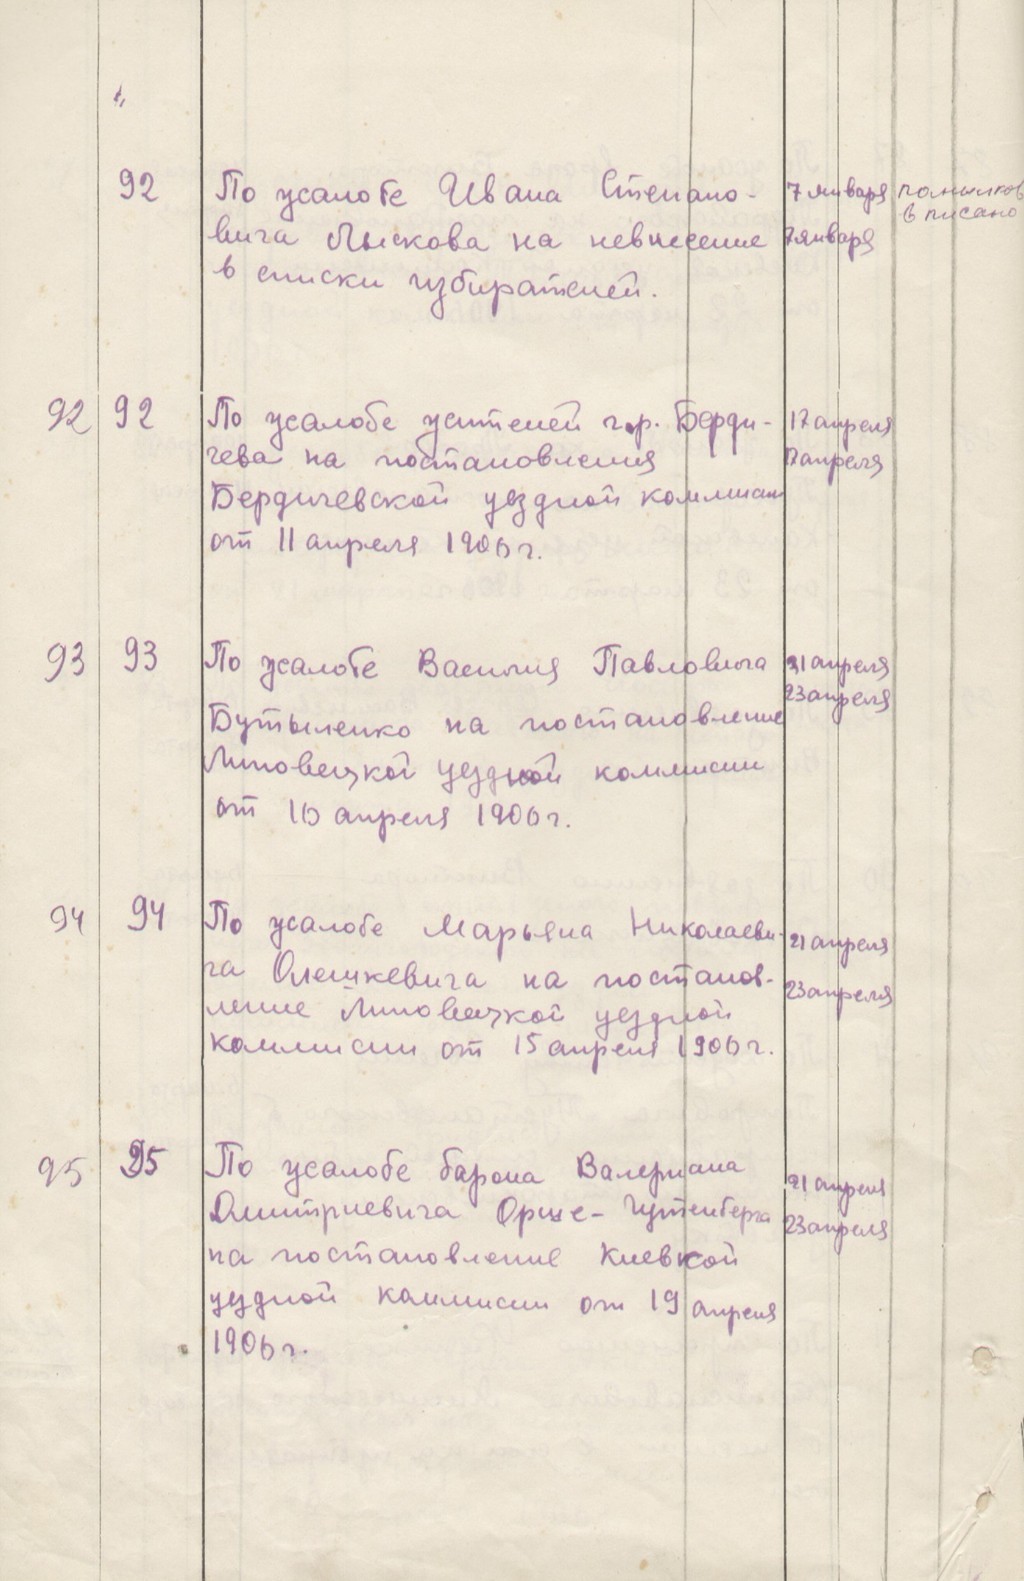 92 По жалобе Ивана Степано- 7 января
вича Лыскова на невнесение 7 января
в писано
в списки избирателей.
92 92 По жалобе жителей гор. Берди- 17 апреля
чева на постановления 17 апреля
Бердичевской уездной коммисии
от 11 апреля 1906 г.
93 93 По жалобе Василия Павловича 21 апреля
23 апреля
Бутыленко на постановление
Липовецкой уездной коммисии
от 16 апреля 1906 г.
94 94 По жалобе Марьяна Николаеви- 21 апреля
ча Олешкевича на постанов- 23 апреля
ление Липовецкой уездной
коммисии от 15 апреля 1906 г.
95 95 По жалобе барона Валериана 21 апреля
Дмитриевича Орще-Гутенберга 23 апреля
на постановление Киевкой
уездной коммисии от 19 апреля
1906 г.